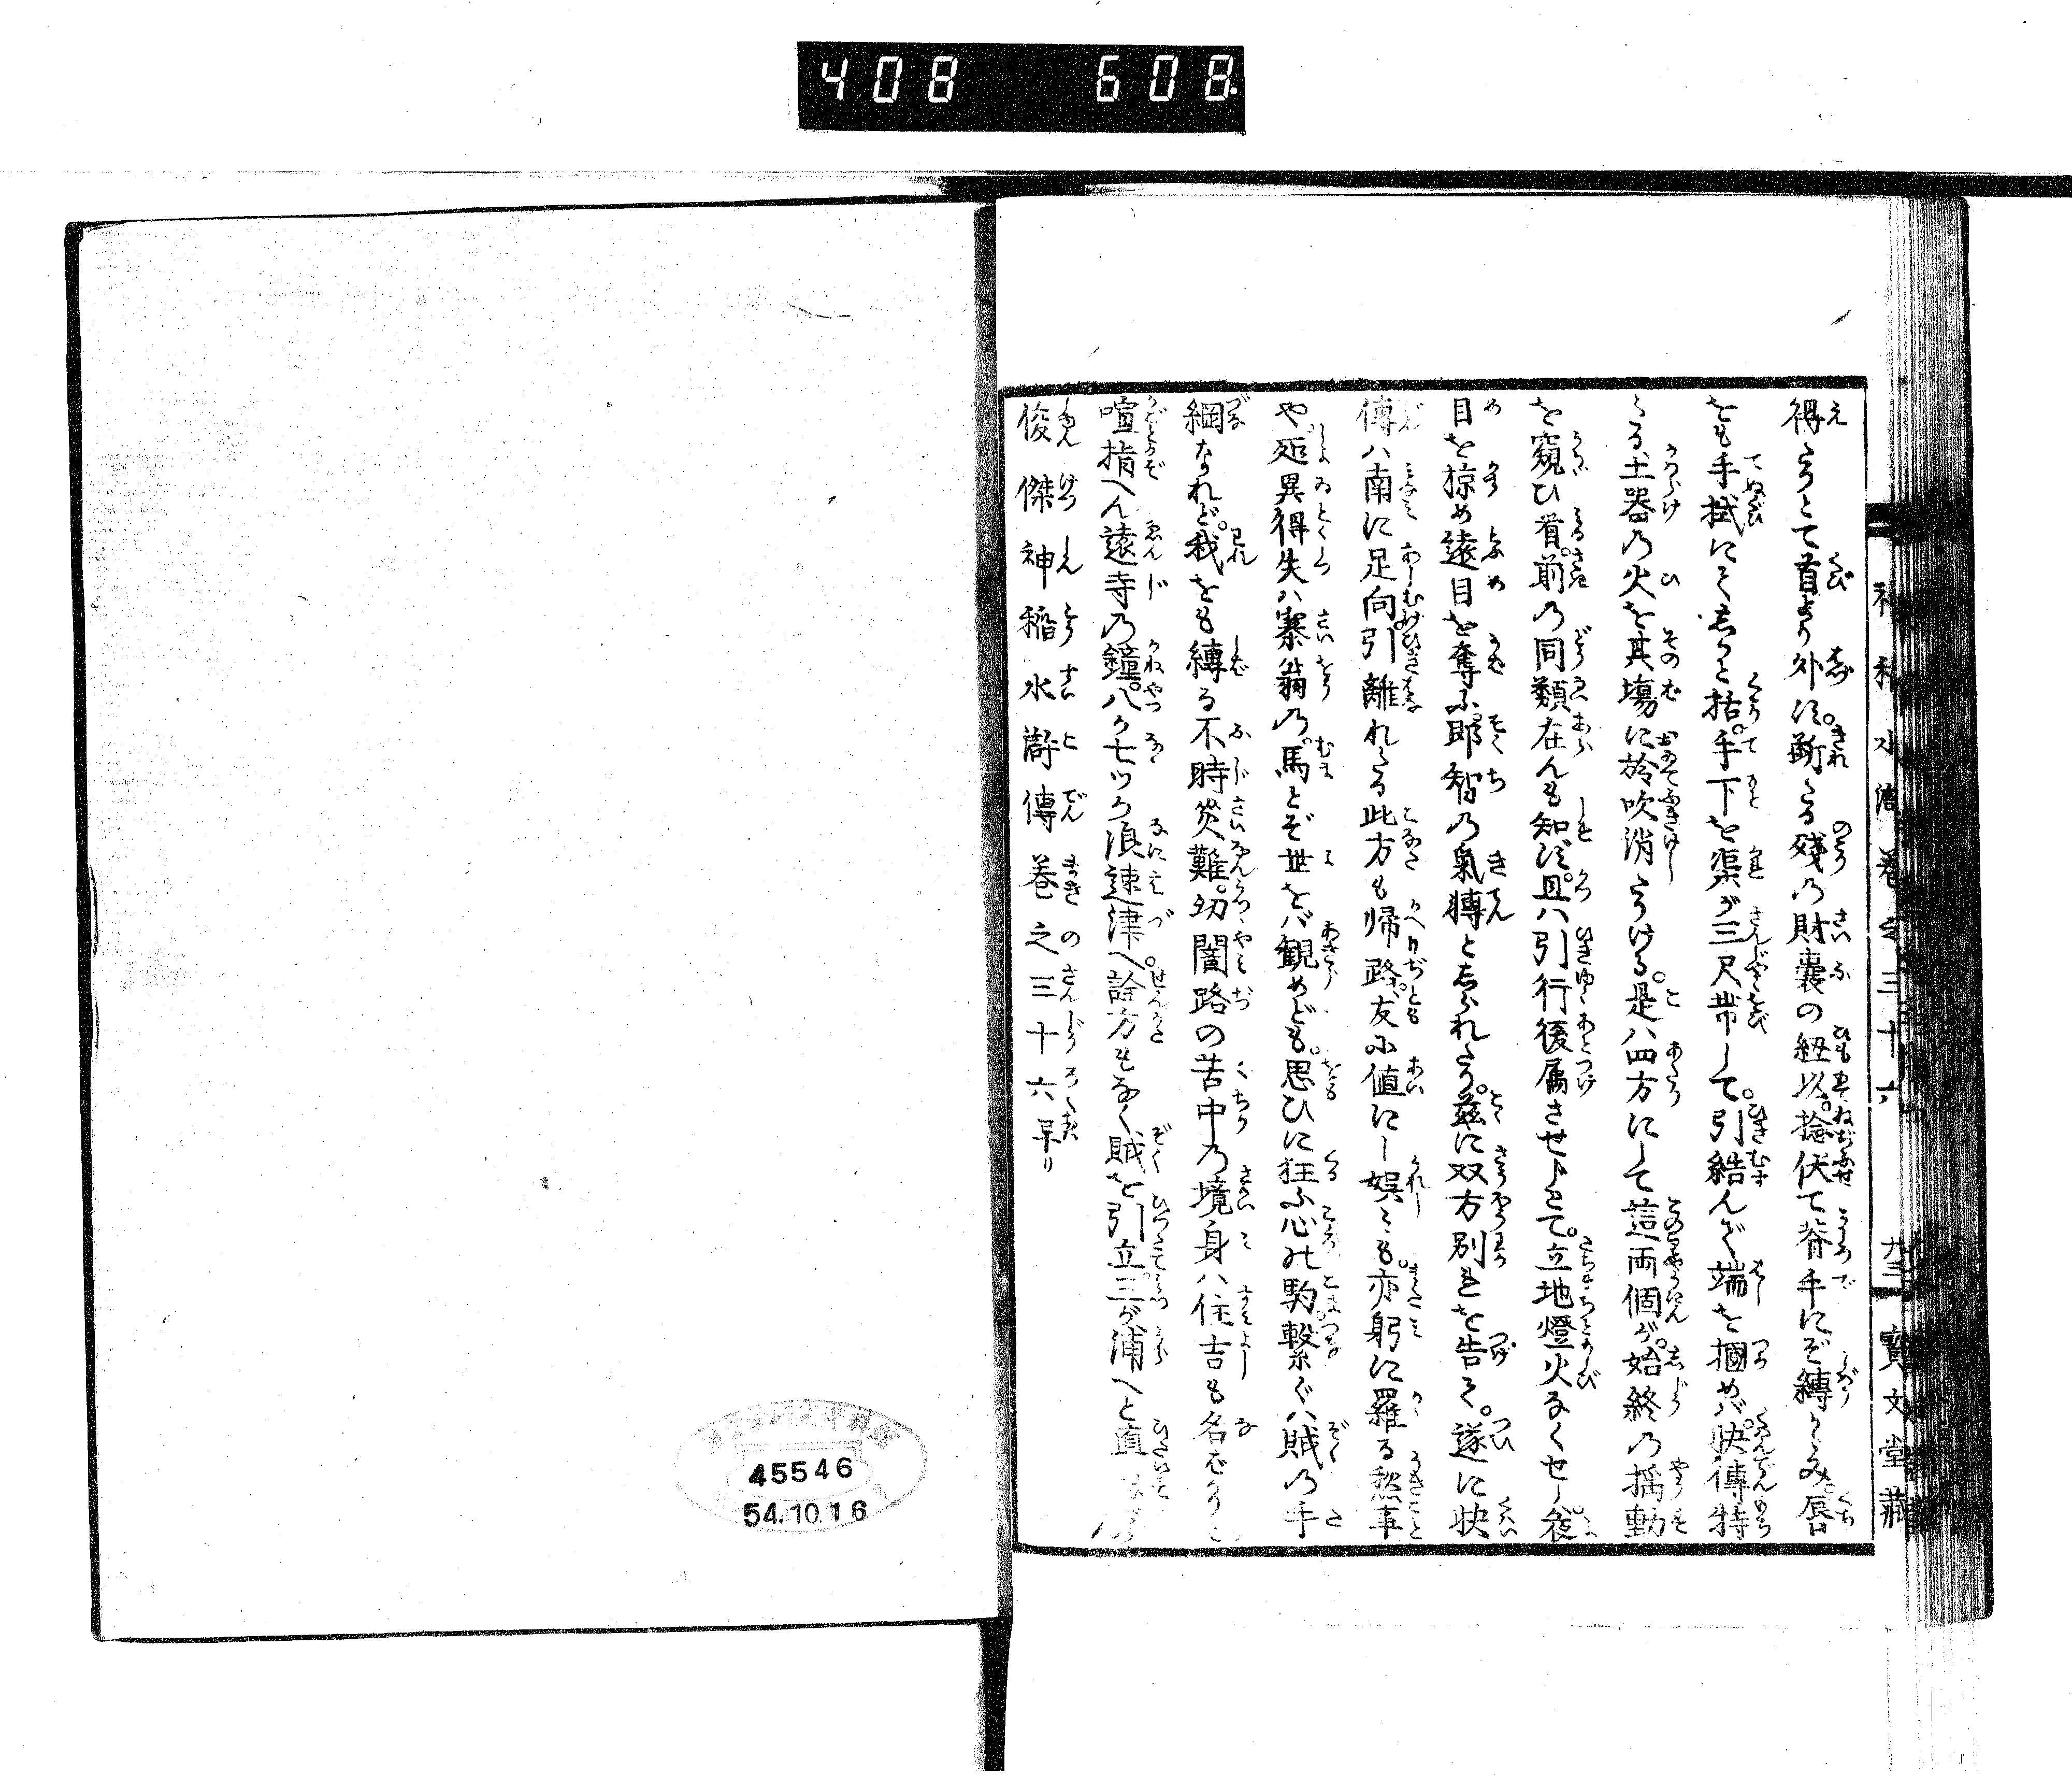 408 608
得たりとて首より外に斫れたる残の財嚢の紐以捻伏て背手にぞ縛りくるみ唇
をも手拭にて括手下を渠が三尺帯して。引結んで端を摑めば快傳特
たる土器の火を其場に於吹消しける。是ハ四方にして這両個が。始終の搖動
を窺ひ前の同類在んも知ず。且ハ引行後属させじとて。立地燈火なくせし
目を掠め遠目を奪ふ即智の氣轉としられたり。茲に双方別を告て。遂に快
傳ハ南に足向引離れたる此方も帰路。友に値にし娯しも。亦躬に羅る愁事
や。延異得失ハ塞翁の。馬とぞ世をバ観めども。思ひに狂ふ心の駒。繋ぐハ賊の手
綱なれど。我をも縛る不時災難。闇路の苦中の境身ハ住吉も名ばかり
喧指へん遠寺の鐘。八か七ツか浪速津へ詮方もなく賊を引立三が浦へと直
俊傑神稲水滸傳巻之三十六早リ
巻之三十六
寶文堂藏
45546
54.10.16